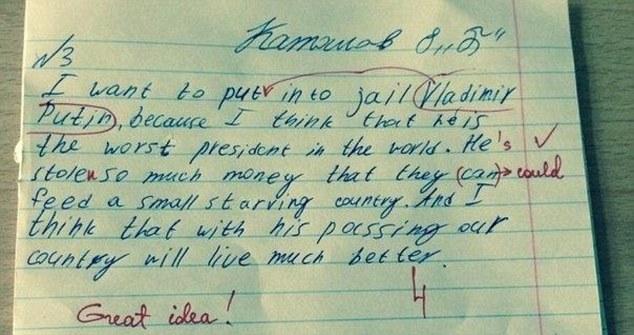 Катомов 8 „Б"
№3
I want to put into jail Vladimir
Putin, because I think that he is
the worst president in the world. He's
stolen so much money that they (can) → could
feed a small starving country. And I
think that with his passing our
country will live much better.
Great idea! 4